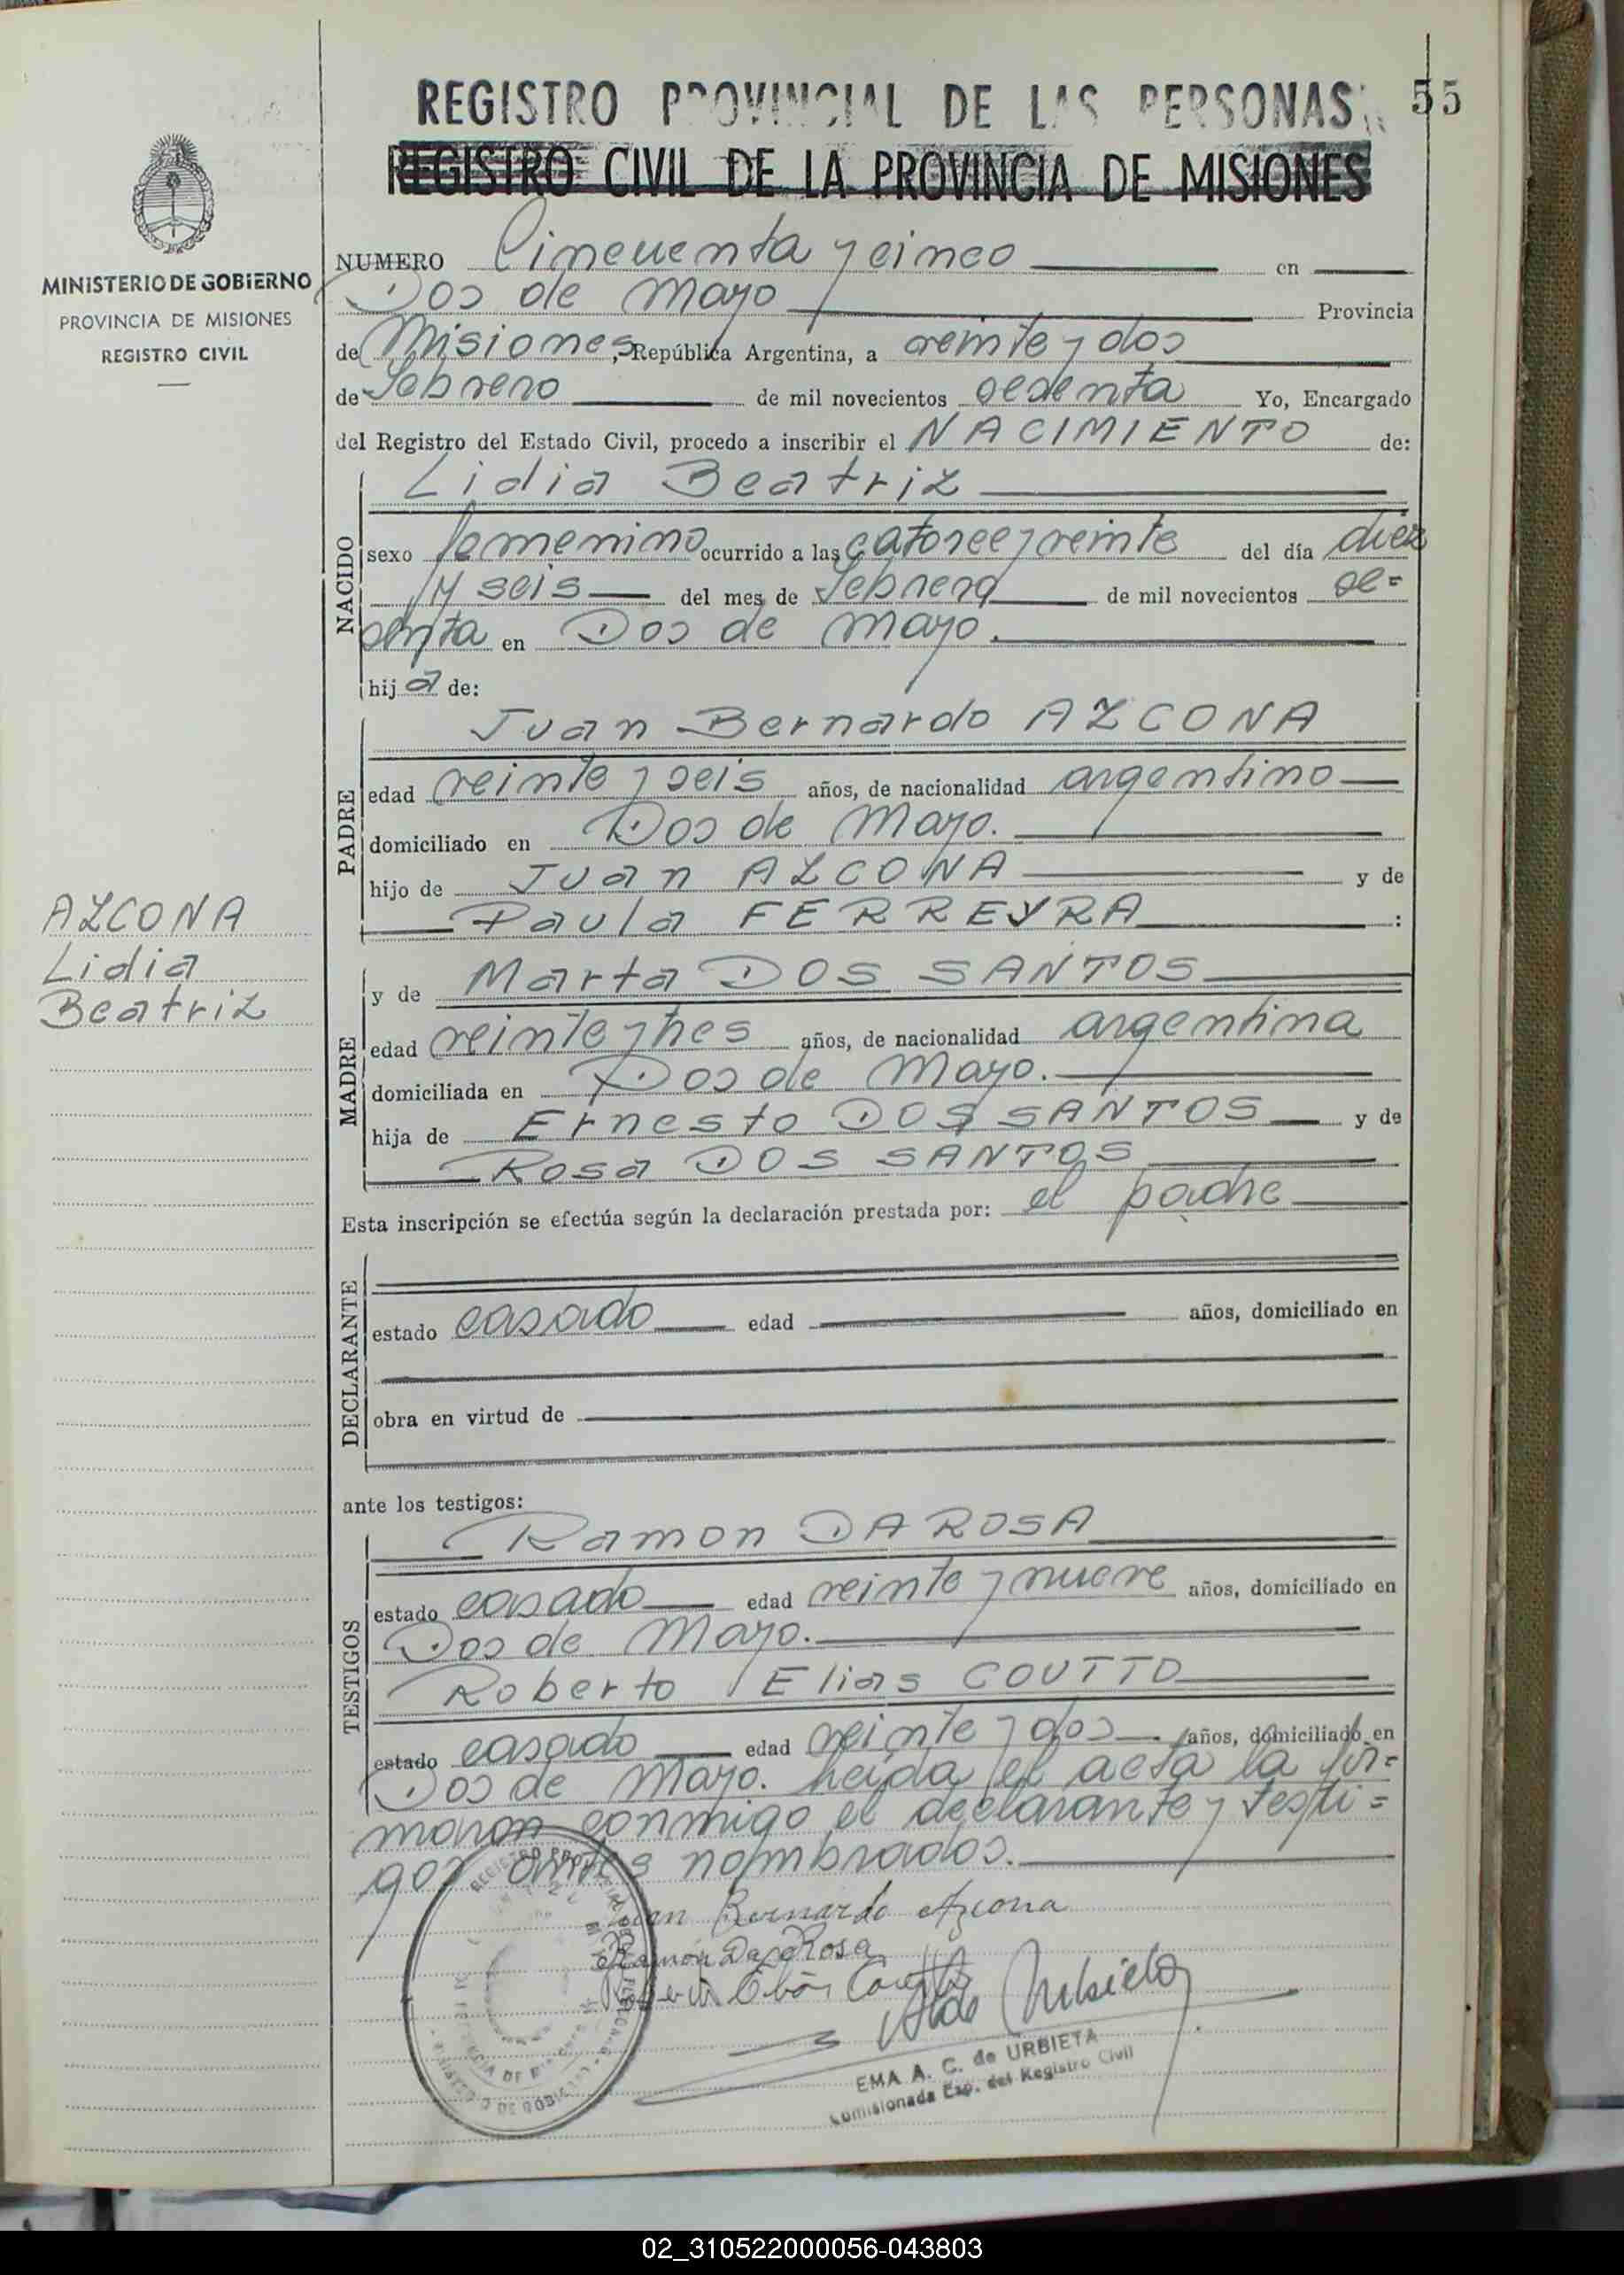 REGISTRO PROVINCIAL DE LAS PERSONAS 55
REGISTRO CIVIL DE LA PROVINCIA DE MISIONES
MINISTERIO DE GOBIERNO
PROVINCIA DE MISIONES
REGISTRO CIVIL
NUMERO Cincuenta y cinco en
Dos de Mayo Provincia
de Misiones, República Argentina, a veinte y dos
de Febrero de mil novecientos sesenta Yo, Encargado
del Registro del Estado Civil, procedo a inscribir el NACIMIENTO de:
NACIDO
Lidia Beatriz
sexo femenino ocurrido a las catorce y veinte del día diez
y seis del mes de Febrero de mil novecientos se=
senta en Dos de Mayo.
hija de:
PADRE
Juan Bernardo AZCONA
edad veinte y seis años, de nacionalidad argentino
domiciliado en Dos de Mayo.
hijo de Juan AZCONA y de
Paula FERREYRA :
AZCONA
Lidia
Beatriz
MADRE
y de Marta DOS SANTOS
edad veinte y tres años, de nacionalidad argentina
domiciliada en Dos de Mayo.
hija de Ernesto DOS SANTOS y de
Rosa DOS SANTOS
Esta inscripción se efectúa según la declaración prestada por: el padre
DECLARANTE
estado casado edad años, domiciliado en
obra en virtud de
ante los testigos:
TESTIGOS
Ramon DA ROSA
estado casado edad veinte y nueve años, domiciliado en
Dos de Mayo.
Roberto Elias COUTTO
estado casado edad veinte y dos años, domiciliado en
Dos de Mayo. Leída el acta la fir=
maron conmigo el declarante y testi=
gos antes nombrados.
Juan Bernardo Azcona
Ramón Da Rosa
EMA A. C. de URBIETA
Comisionada Esp. del Registro Civil
02_310522000056-043803